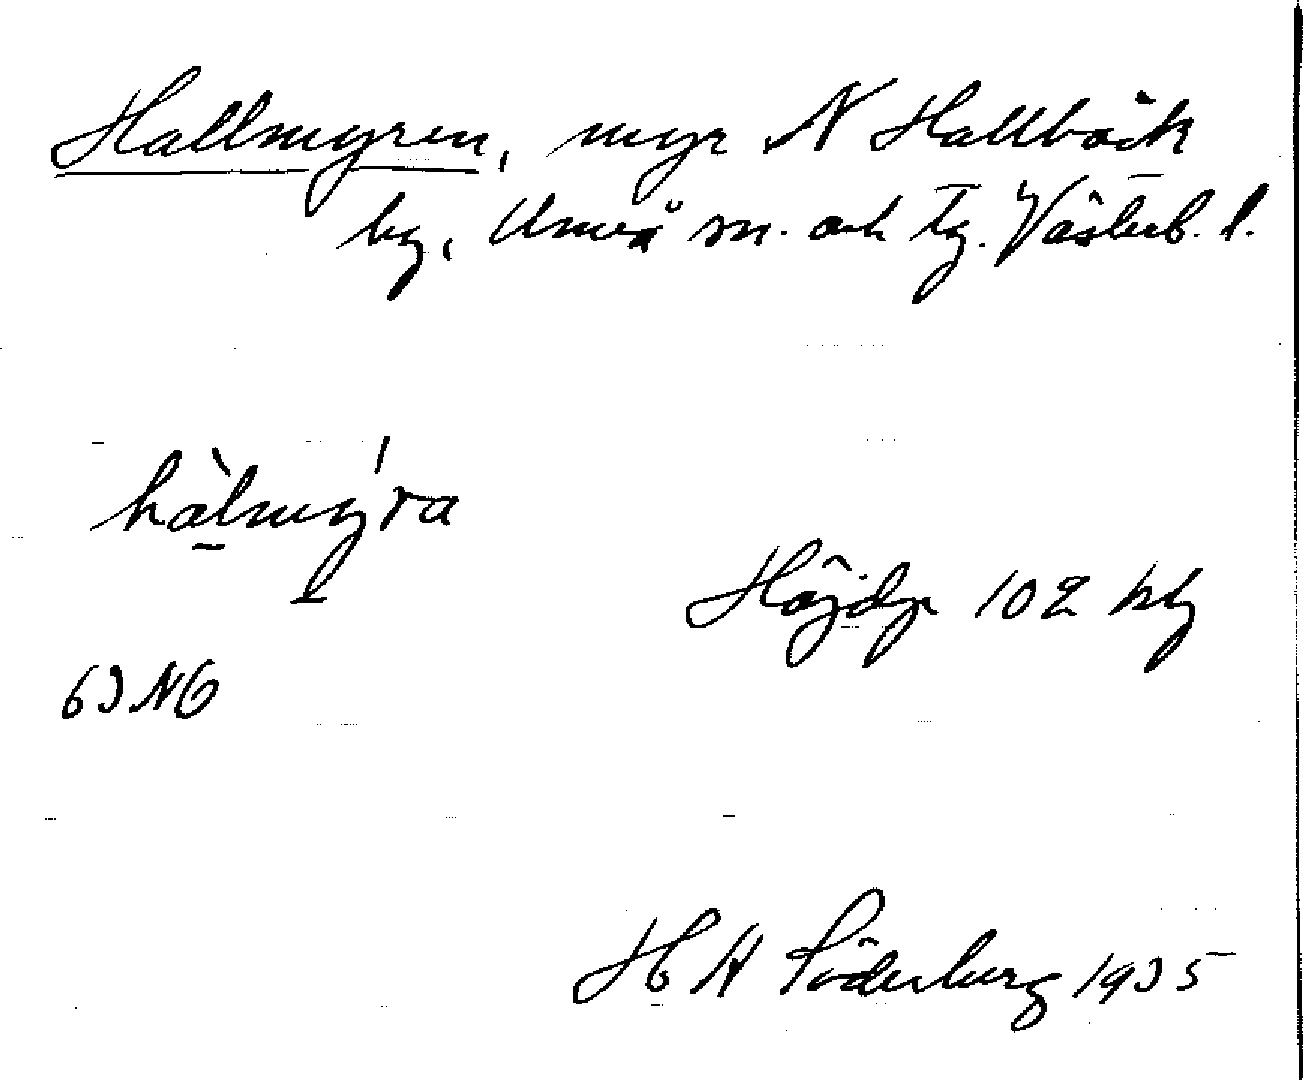 Hallmyren, myr N Hallbäck
by, Umeå sn. och tg. Västerb. l.
hàlmy̱´ra
Höjdp 102 kbg
63 NG
H A Söderberg 1935